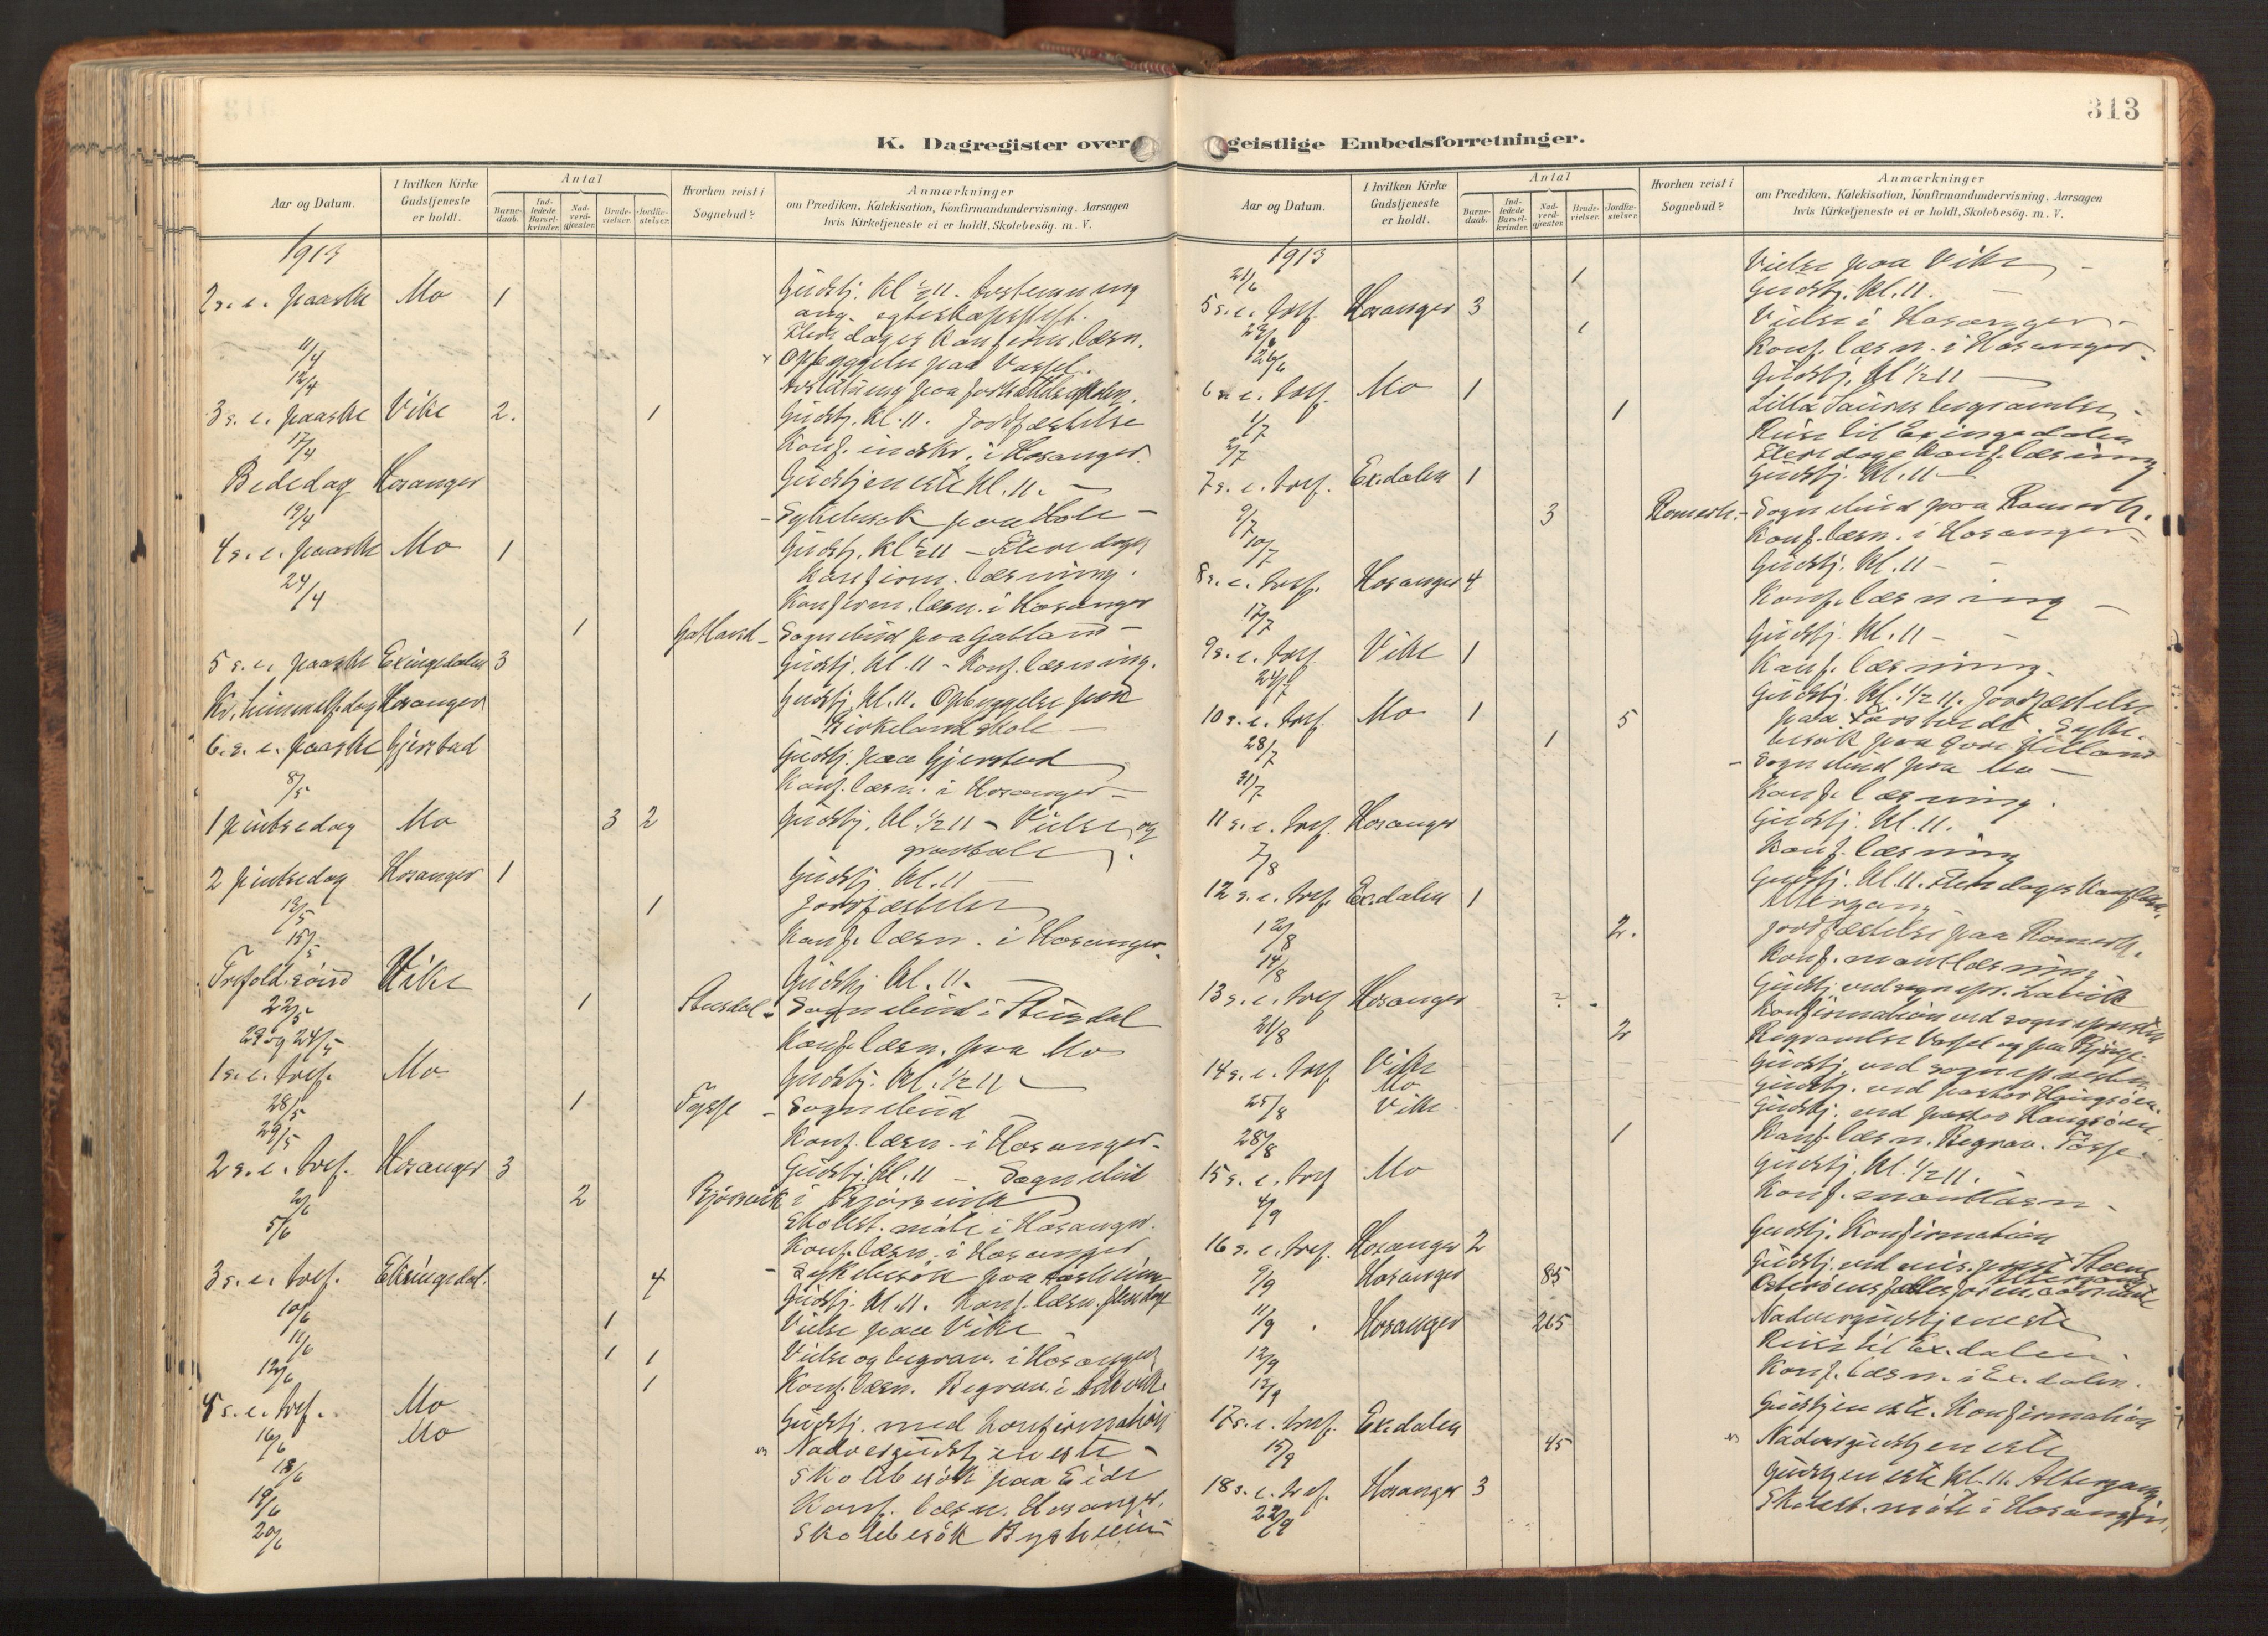 313
K. Dagregister over geistlige Embedsforretninger.
Aar og Datum. I hvilken Kirke Gudstjeneste er holdt. Antal Barnedaab. Indledede Barselkvinder. Nadverdgjæster. Brudevielser. Jordfæstelser. Hvorhen reist i Sognebud? Anmærkninger om Prædiken, Katekisation, Konfirmandundervisning, Aarsagen hvis Kirketjeneste ei er holdt, Skolebesøg. m. V.
1913
2 s. e. paaske Mo 1 Gudstj. kl ½ 11. Avstemning
ang. egteskapsstift.
Flere dager konfirm. læsn.
11/4 Opbyggelse paa Vassel.
12/4
3 s. e. paaske Vike 2. 1 Gudstj. kl. 11. Jordfæstelse
17/4 Konf. indskr. i Hosanger.
Bededag Hosanger Gudstjeneste kl. 11. —
19/4 Sykebesøk paa Hole —
4 s. e. paaske Mo 1 Gudstj. kl ½ 11 — Flere dager
konfirm. læsning.
24/4 Konfirm. læsn. i Hosanger
1 Gatland — Sognebud paa Gatland —
5 s. e. paaske Exingedalen 3 Gudstj. kl. 11 — Konf. læsning.
Kr. himmelf. dag Hosanger Gudstj. kl. 11. Opbyggelse paa
Birkeland skole —
6. s. e. paaske Gjerstad Gudstj. paa Gjerstad
8/5 Konf. læsn. i Hosanger —
1 pintsedag Mo 3 2 Gudstj. kl. ½ 11 — Vielse og
gravtale
2 pintsedag Hosanger 1 Gudstj. kl. 11 —
13/5 1 Jordfæstelse
15/5 Konf. læsn. i Hosanger.
Trefold. sønd Vike Gudstj. kl. 11.
22/5 1 Stusdal — Sognebud i Stusdal
23 og 24/5 Konf. læsn. paa Mo
1 s. e. tref. Mo Gudstj. kl. ½ 11
28/5 1 Fosse — Sognebud
29/5 Konf. læsn. i Hosanger —
2 s. e. tref. Hosanger 3 Gudstj. kl. 11 — Sognebud
2/6 2 Bjørsvik i Bjørsvik
5/6 Skolest. møte i Hosanger.
Konf. læsn. i Hosanger
3 s. e. tref. Eksingedal. 4 Sykebesøk paa
Gudstj. kl. 11. Konf. læsn. flere dage
10/6 1 Vielse paa Vike
11/6 1 1 Vielse og begrav. i Hosanger
12/6 1 Konf. læsn. Begrav. i
4 s. e. tref. Mo Gudstj. med konfirmation
16/6 Mo Nadvergudstjeneste —
18/6 Skolebesøk paa Eide
19/6 Konf. læsn. Hosanger.
20/6 Skolebesøk Bysheim
Aar og Datum. I hvilken Kirke Gudstjeneste er holdt. Antal Barnedaab. Indledede Barselkvinder. Nadverdgjæster. Brudevielser. Jordfæstelser. Hvorhen reist i Sognebud? Anmærkninger om Prædiken, Katekisation, Konfirmandundervisning, Aarsagen hvis Kirketjeneste ei er holdt, Skolebesøg. m. V.
1913
21/6 1 Vielse paa Vike —
5 s. e. tref. Hosanger 3 Gudstj. kl. 11. —
23/6 1 Vielse i Hosanger —
26/6 Konf. læsn. i Hosanger.
6 s. e. tref. Mo 1 Gudstj. kl ½ 11 —
1/7 1 begravelse —
2/7 Reise til Exingedalen
Flere dage konf. læsning
7 s. e. tref. Ex.dalen 1 Gudstj. kl. 11 —
9/7 3 Romerh. — Sognebud paa Romerh.
10/7 Konf. læsn. i Hosanger
8 s. e. tref. Hosanger 4 Gudstj. kl. 11 —
17/7 Konf. læsning —
9 s. e. tref Vike 1 Gudstj. kl. 11 —
24/7 Konf. læsning.
10 s. e. tref. Mo 1 5 Gudstj. kl. ½ 11. Jordfæstelse
paa Syke-
besøk paa
28/7 1 Sognebud paa Mo —
31/7 Konf. læsning.
11 s. e. tref. Hosanger Gudstj. kl. 11.
7/8 Konf. læsning
12 s. e. tref. Ex.dalen 1 Gudstj. kl. 11. Flere dager konf. læsn.
Altergang
12/8 2. Jordfæstelse paa Romerh.
14/8 Konf. læsning
13 s. e. tref Hosanger Gudstj. ved sognepr.
Konfirmation ved sognepresten
21/8 2 Begravelse Vassel og paa
14 s. e. tref Vike Gudstj. ved sognepresten
Mo Gudstj. ved pastor Haugsøen.
25/8 Vike Gudstj. ved pastor Haugsøen
28/8 1 Konf. læsn. Begrav. Fosse.
15 s. e. tref Mo Gudstj. kl. ½ 11.
4/9 Konf. læsn.
16 s. e. tref. Hosanger 2 Gudstj. Konfirmation
9/9 Hosanger 85 Gudstj. ved mis. prest Steene
Altergang
11/9 Hosanger 265 Nadvergudstjeneste
12/9 Reise til Ex.dalen.
13/9 Konf. læsn. i Ex.dalen.
17 s. e. tref. Ex.dalen Gudstjeneste. Konfirmation
15/9 45 Nadvergudstjeneste
18 s. e. tref. Hosanger 3 Gudstjeneste kl. 11. Altergang
22/9 Skolest. møte i Hosanger.